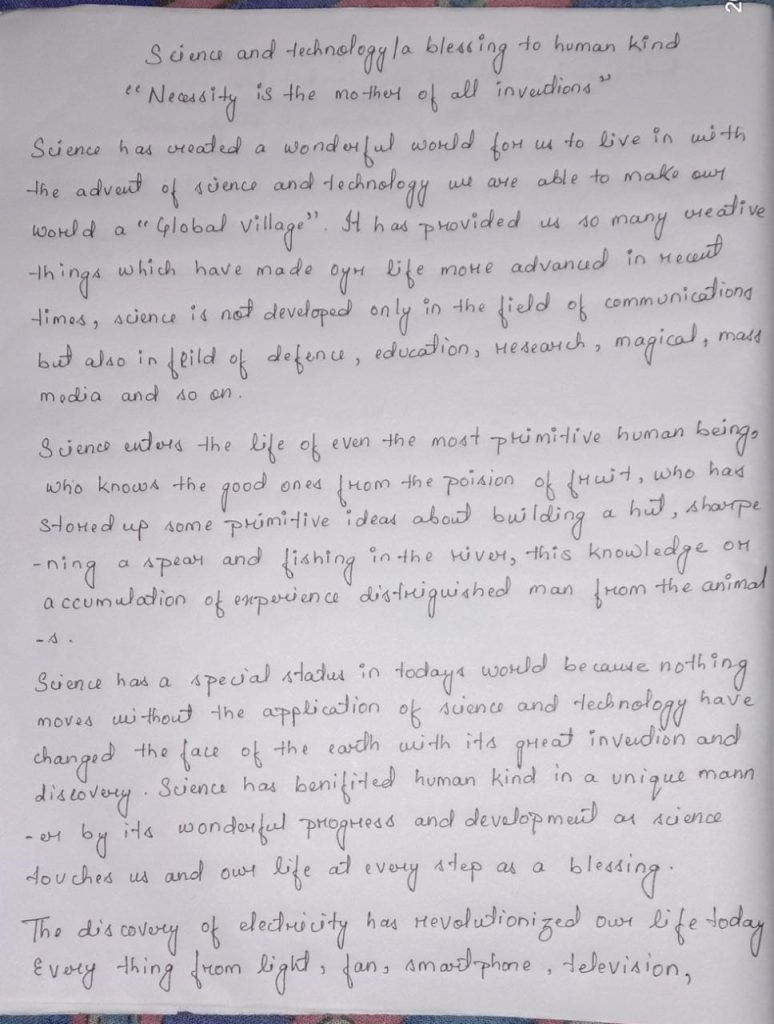 Science and technology/a blessing to human kind
"Necessity is the mother of all inventions"
Science has created a wonderful world for us to live in with
the advent of science and technology we are able to make our
world a "Global Village". It has provided us so many creative
things which have made oyr life more advanced in recent
times, science is not developed only in the field of communications
but also in feild of defence, education, research, magical, mass
media and so on.
Science enters the life of even the most primitive human being,
who knows the good ones from the poision of fruit, who has
stored up some primitive ideas about building a hut, sharpe
-ning a spear and fishing in the river, this knowledge or
accumulation of experience distriguished man from the animal
-s.
Science has a special status in todays world because nothing
moves without the application of science and technology have
changed the face of the earth with its great invention and
discovery. Science has benifited human kind in a unique mann
-er by its wonderful progress and development as science
touches us and our life at every step as a blessing.
The discovery of electricity has revolutionized our life today
Every thing from light, fan, smartphone, television,